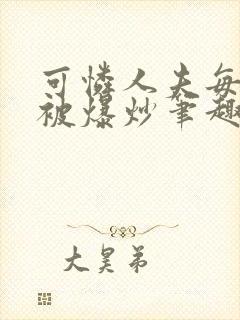 可怜人夫每
被爆炒笔趣
大昊弟